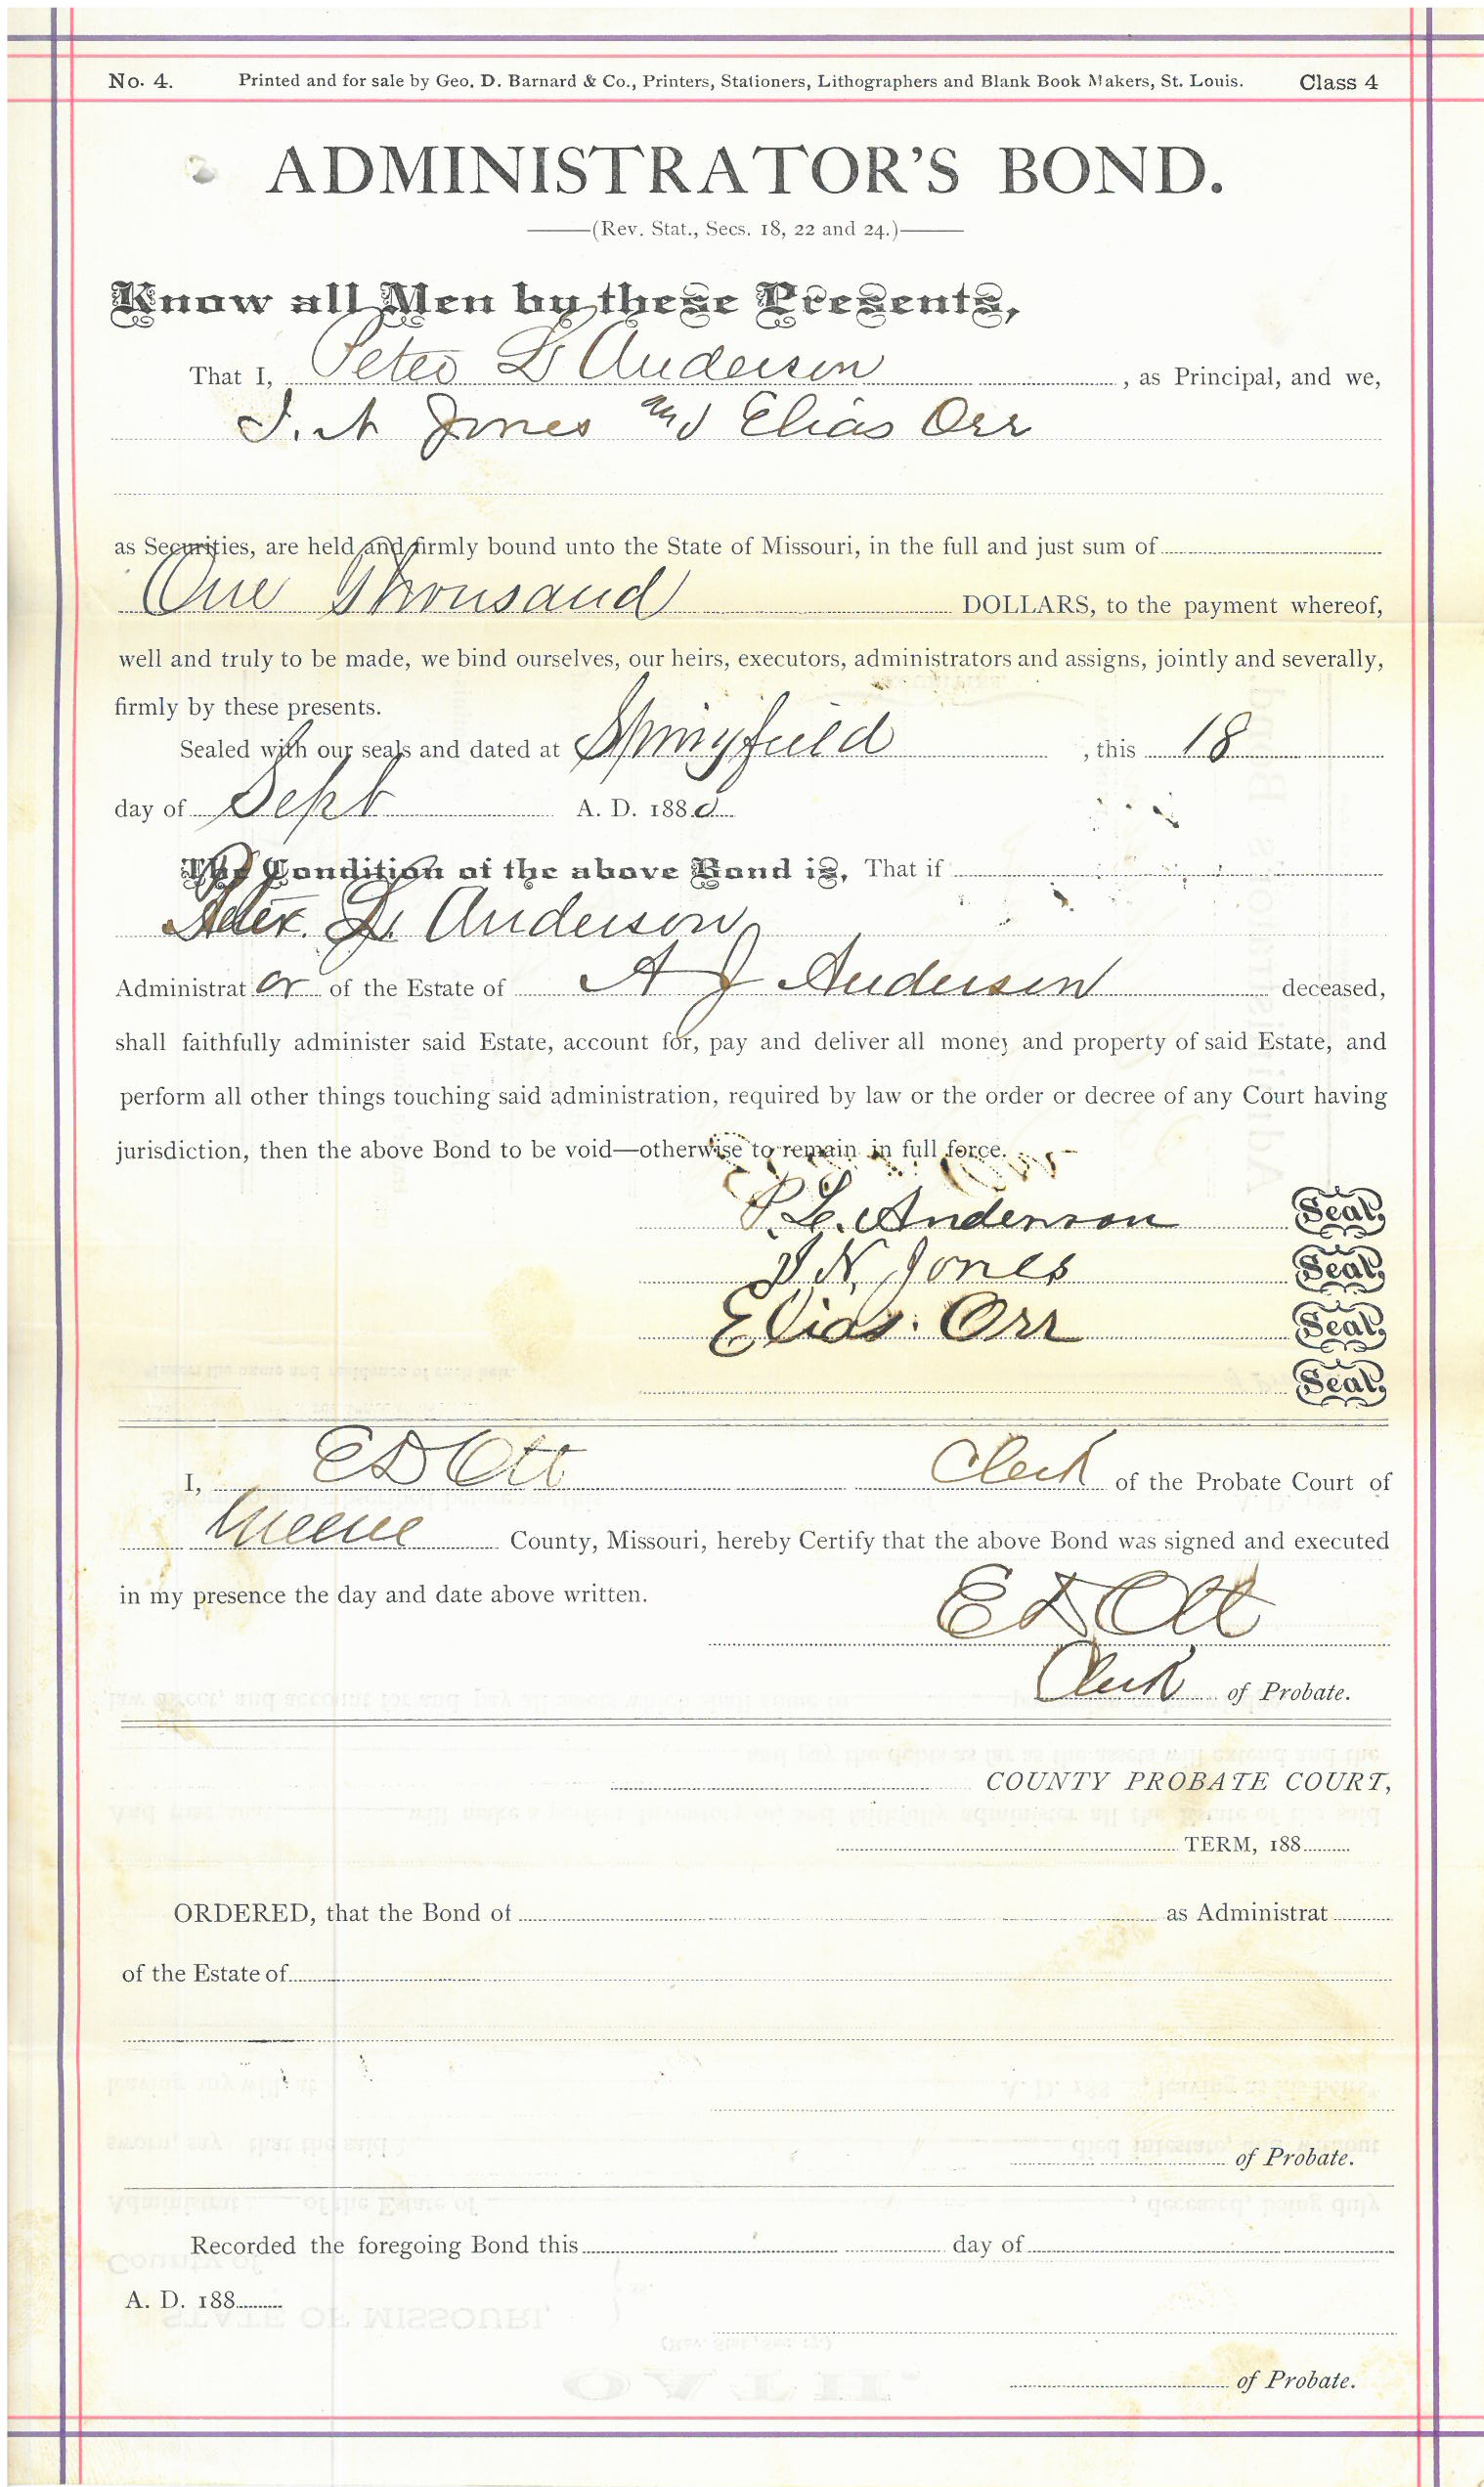 No. 4. Printed and for sale by Geo. D. Barnard & Co., Printers, Stationers, Lithographers and Blank Book Makers, St. Louis. Class 4
ADMINISTRATOR'S BOND.
(Rev. Stat., Secs. 18, 22 and 24.)
Know all Men by these Presents,
That I, Peter L Anderson, as Principal, and we,
J. N Jones and Elias Orr
as Securities, are held and firmly bound unto the State of Missouri, in the full and just sum of
One Thousand DOLLARS, to the payment whereof,
well and truly to be made, we bind ourselves, our heirs, executors, administrators and assigns, jointly and severally,
firmly by these presents.
Sealed with our seals and dated at Springfield, this 18
day of Sept A. D. 1880
The Condition of the above Bond is, That if
Peter L. Anderson
Administrator of the Estate of A J Anderson deceased,
shall faithfully administer said Estate, account for, pay and deliver all money and property of said Estate, and
perform all other things touching said administration, required by law or the order or decree of any Court having
jurisdiction, then the above Bond to be void—otherwise to remain in full force.
P. L. Anderson Seal,
J N. Jones Seal,
Elias. Orr Seal,
Seal,
I, E D Ott Clerk of the Probate Court of
Greene County, Missouri, hereby Certify that the above Bond was signed and executed
in my presence the day and date above written.
E D Ott
Clerk of Probate.
COUNTY PROBATE COURT,
TERM, 188
ORDERED, that the Bond of as Administrat
of the Estate of
of Probate.
Recorded the foregoing Bond this day of
A. D. 188
of Probate.